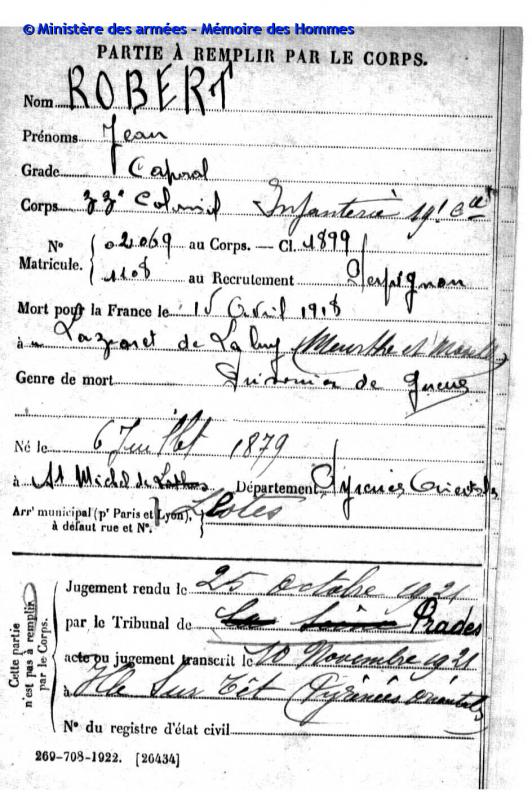 © Ministère des armées - Mémoire des Hommes
PARTIE À REMPLIR PAR LE CORPS.
Nom ROBERT
Prénoms Jean
Grade Caporal
Corps 33e Colonial Infanterie 19e Cie
N° Matricule. { 02069 au Corps. — Cl. 1899
1108 au Recrutement Perpignan
Mort pour la France le 15 Avril 1918
à Lazaret de (Meurthe et Moselle)
Genre de mort Prisonnier de guerre
Né le 6 Juillet 1879
à St Michel de Département Pyrénées Orientales
Arrt municipal (pr Paris et Lyon), à défaut rue et N°. } Llotes
Cette partie n'est pas à remplir par le Corps.
Jugement rendu le 25 octobre 1921
par le Tribunal de la Seine Prades
acte ou jugement transcrit le 10 Novembre 1921
à Ille sur Têt (Pyrénées Orientales)
N° du registre d'état civil
269-708-1922. [26434]